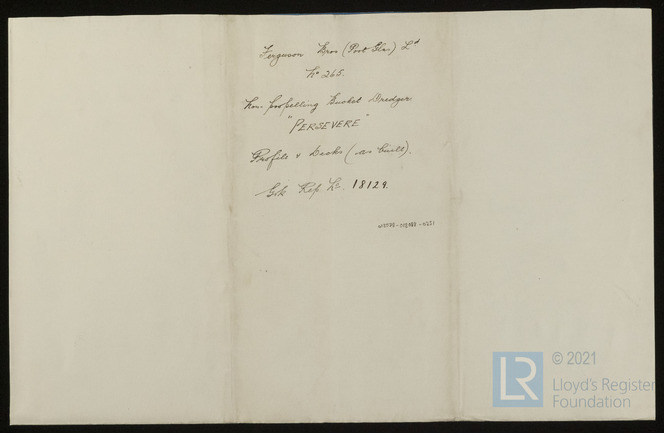 Ferguson Bros (Port Glw) Ld
No 265.
Non-propelling Bucket Dredger.
"PERSEVERE"
Profile & Decks (as built).
Gok Rep No. 18129.
LR
© 2021
Lloyd's Register
Foundation